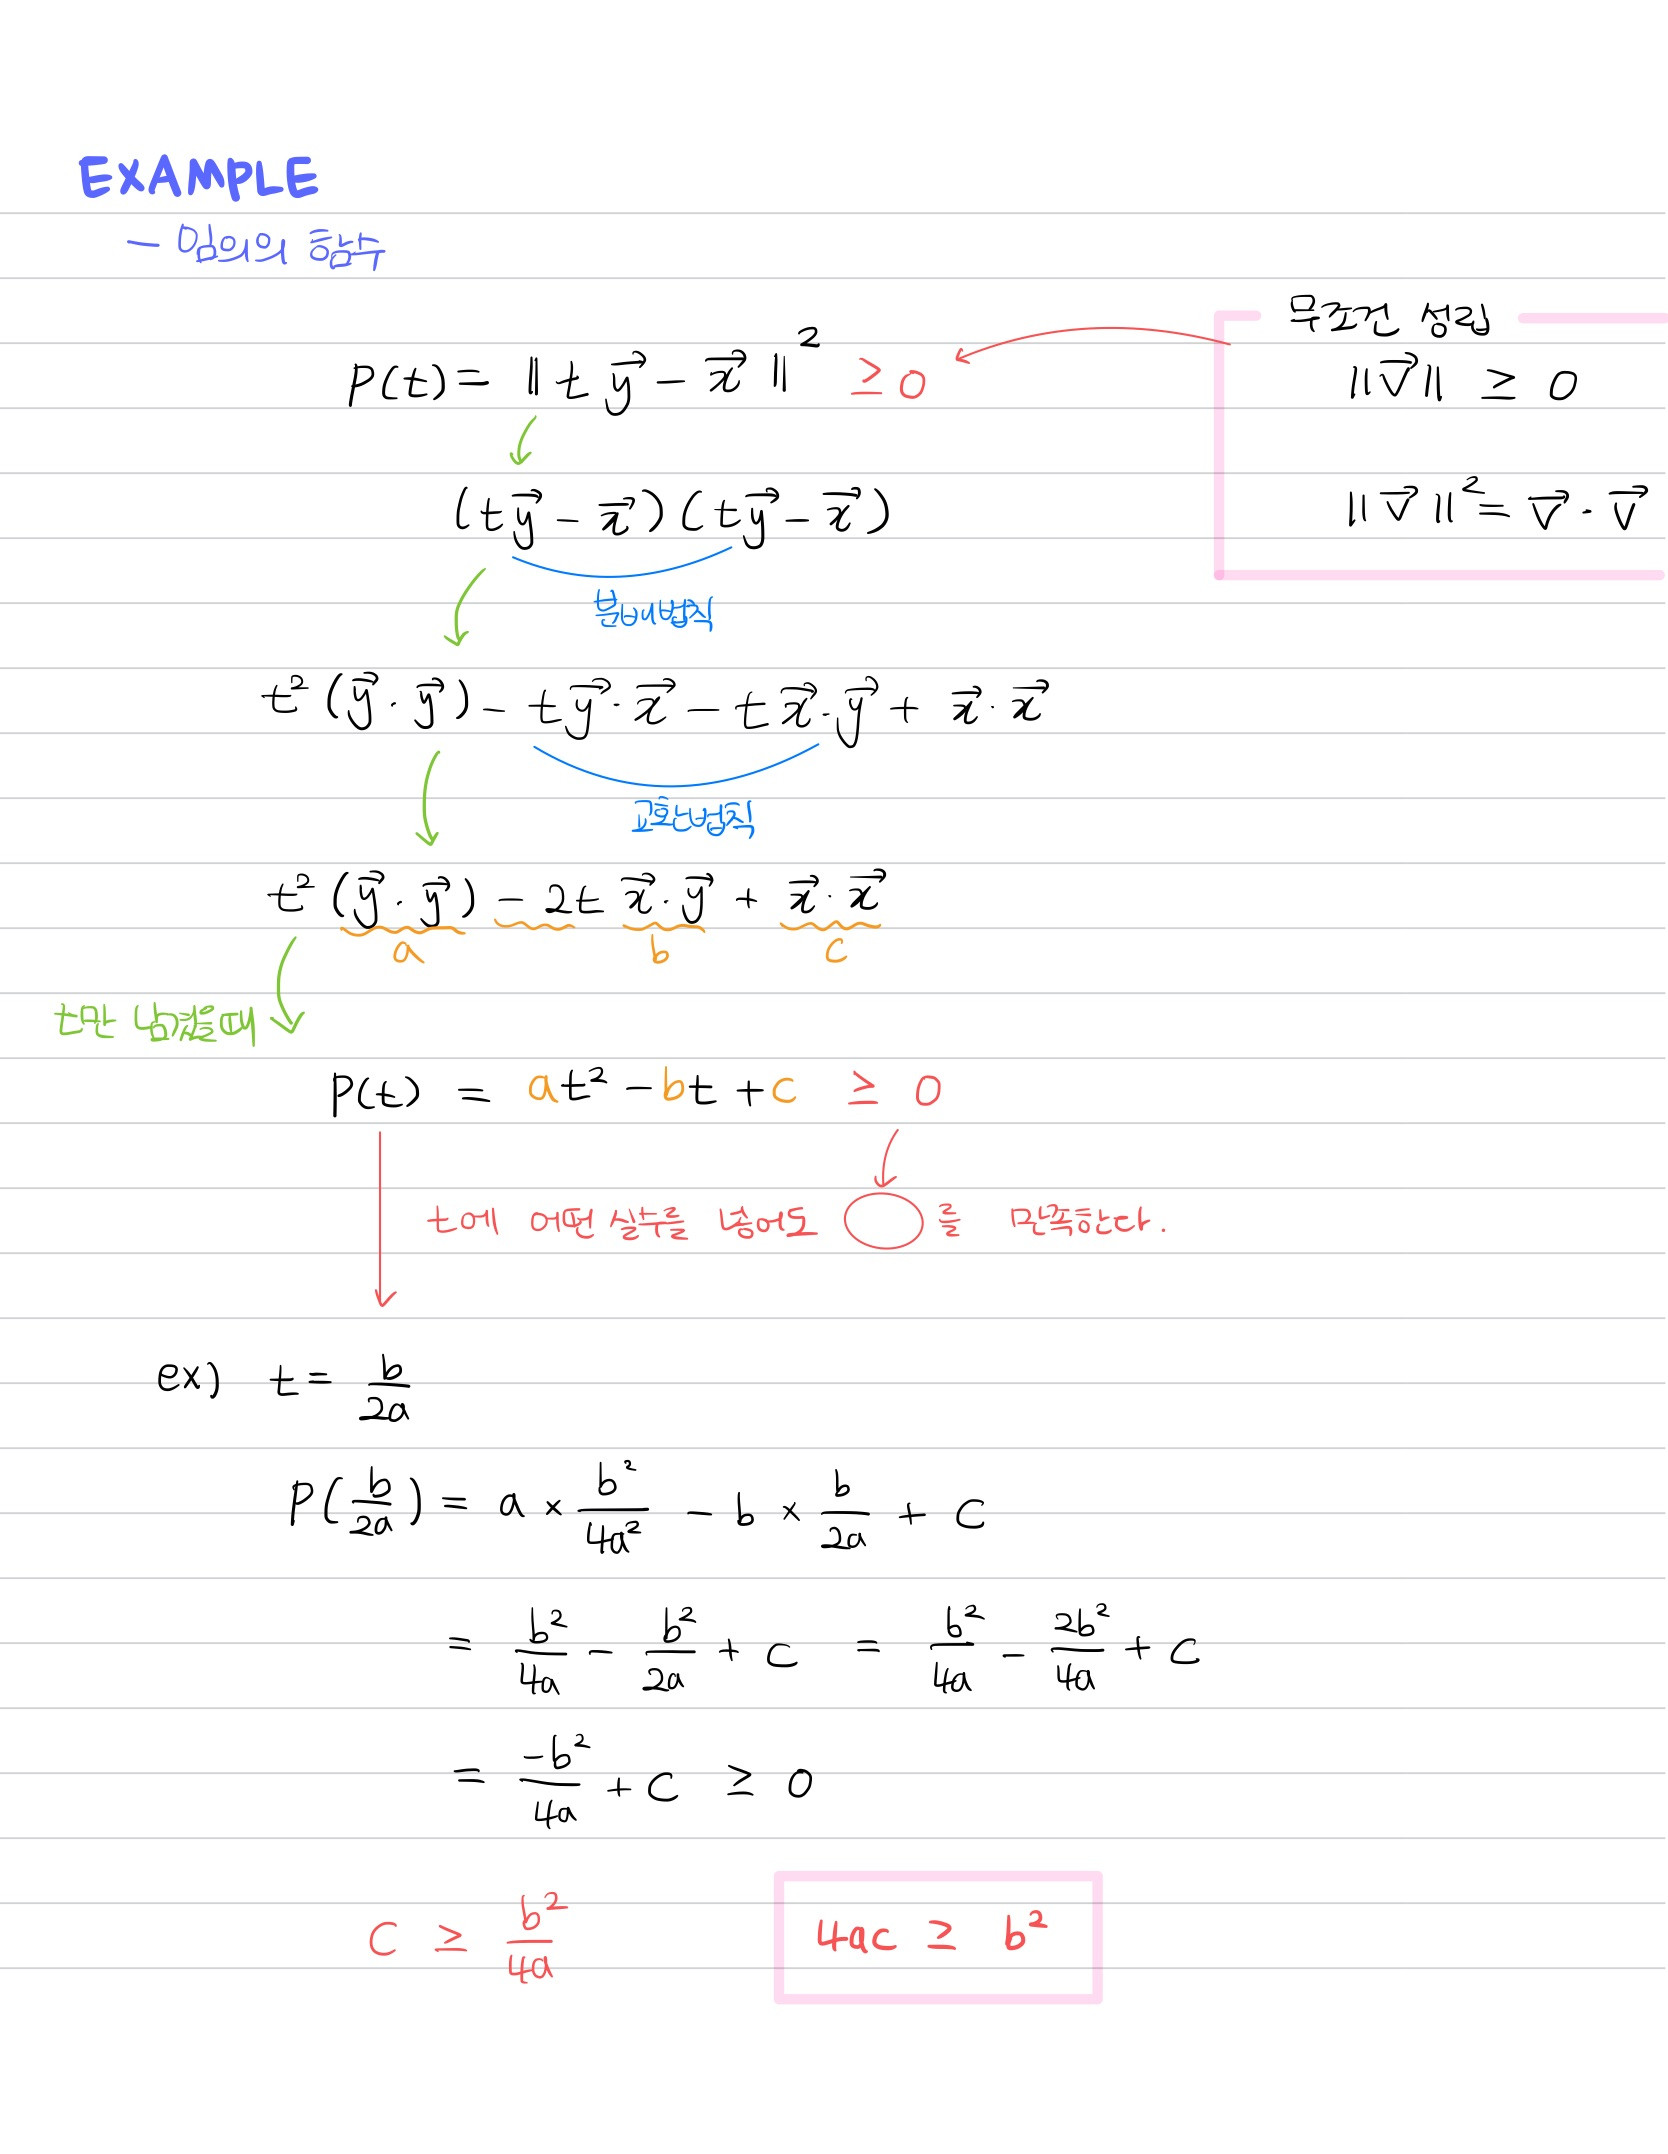 EXAMPLE
- 임의의 함수
무조건 성립
P(t) = ‖t y⃗ - x⃗‖² ≥ 0
‖v⃗‖ ≥ 0
(t y⃗ - x⃗)(t y⃗ - x⃗)
‖v⃗‖² = v⃗ · v⃗
분배법칙
t²(y⃗ · y⃗) - t y⃗ · x⃗ - t x⃗ · y⃗ + x⃗ · x⃗
교환법칙
t²(y⃗ · y⃗) - 2t x⃗ · y⃗ + x⃗ · x⃗
a b c
t만 남겼을때
P(t) = at² - bt + c ≥ 0
t에 어떤 실수를 넣어도 를 만족한다.
ex) t = b/2a
P(b/2a) = a × b²/4a² - b × b/2a + c
= b²/4a - b²/2a + c = b²/4a - 2b²/4a + c
= -b²/4a + c ≥ 0
c ≥ b²/4a
4ac ≥ b²